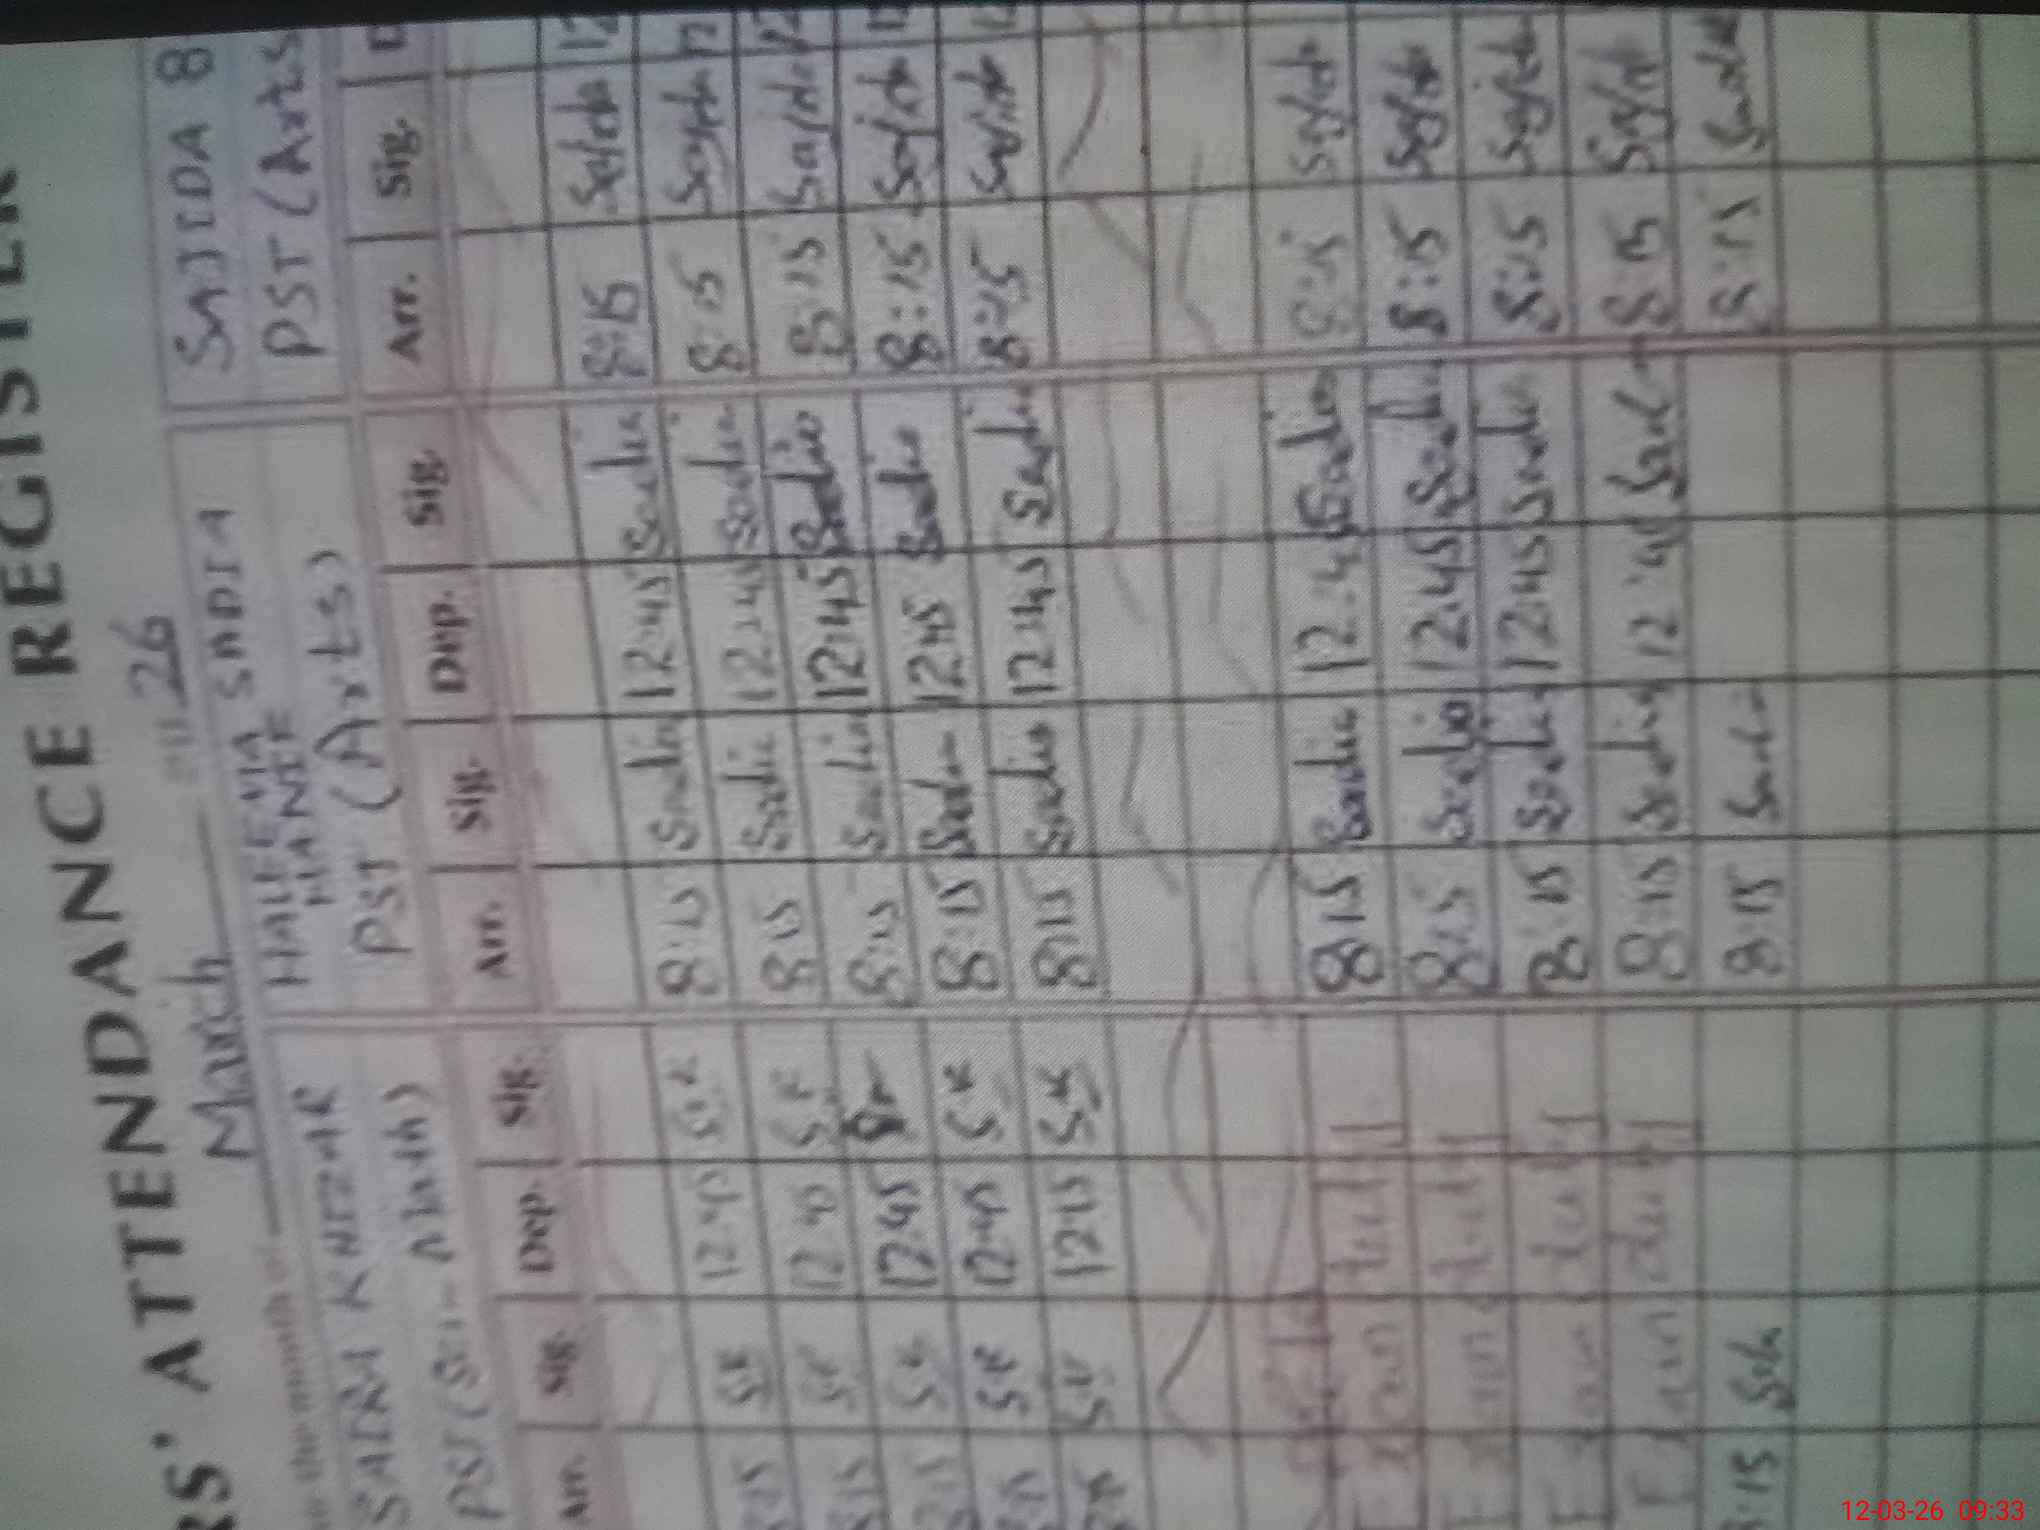 RS' ATTENDANCE REGISTER
the month March 26
SAIMA KHIZAR HALEEMA SADIA SAJIDA B
PST (Sci-Math) PST (Arts) PST (Arts
Arr. Sig. Dep. Sig. Arr. Sig. Dep. Sig. Arr. Sig. D
8:15 SK 12:45 SK 8:15 Sadia 12:45 Sadia 8:15 Sajida 12
8:15 SK 12:45 SK 8:15 Sadia 12:45 Sadia 8:15 Sajida 12
8:15 SK 12:45 8:15 Sadia 12:45 Sadia 8:15 Sajida 12
8:15 SK 12:45 SK 8:15 Sadia 12:45 Sadia 8:15 Sajida 1
SK 12:45 SK 8:15 Sadia 12:45 Sadia 8:15 Sajida 12
8:15 Sadia 12:45 Sadia 8:15 Sajida
8:15 Sadia 12:45 Sadia 8:15 Sajida
8:15 Sadia 12:45 Sadia 8:15 Sajida
8:15 Sadia 12:4 Sadia 8:15 Sajida
:15 8:15 Sadia 8:15 Sajida
12-03-26 09:33